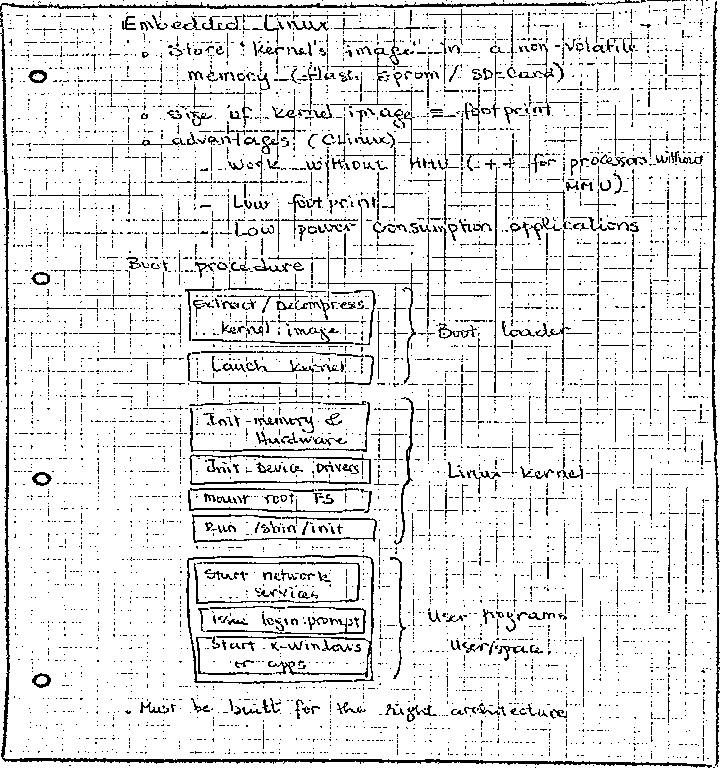 Embedded Linux
• Store kernel's image in a non-volatile
memory (flash, Eprom / SD-Card)
• size of kernel image = footprint
• advantages (CLinux)
- Work without MMU (++ for processors without
MMU)
- Low footprint
- Low power consumption applications
Boot procedure
Extract / Decompress
kernel image
Boot loader
Lauch kernel
Init memory &
Hurdware
Init Device Drivers
Linux kernel
mount root FS
Run /sbin/init
Start network
services
issue login prompt
User programs
Start x-windows
or apps
User/space.
. Must be built for the right architecture